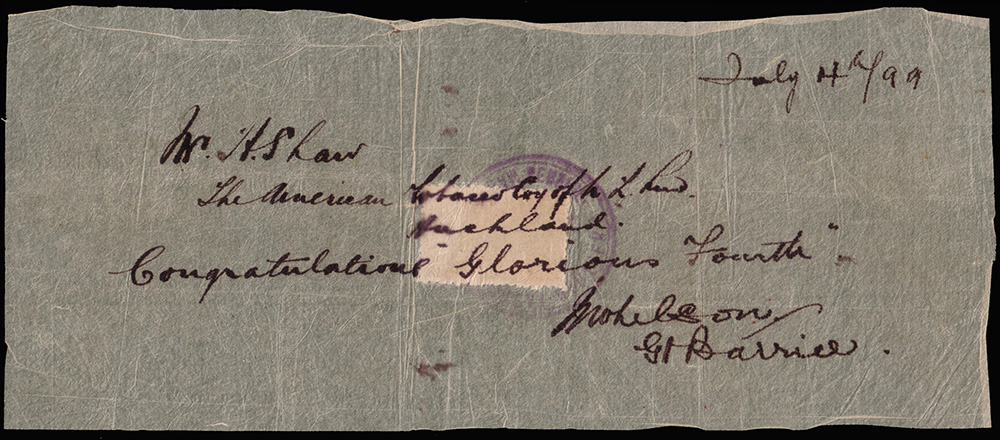 July 4th/99
Mr. H. Shaw
The American Tobacco Coy of N.Z. Ltd.
Auckland.
Congratulations "Glorious Fourth".
Gt Barrier.